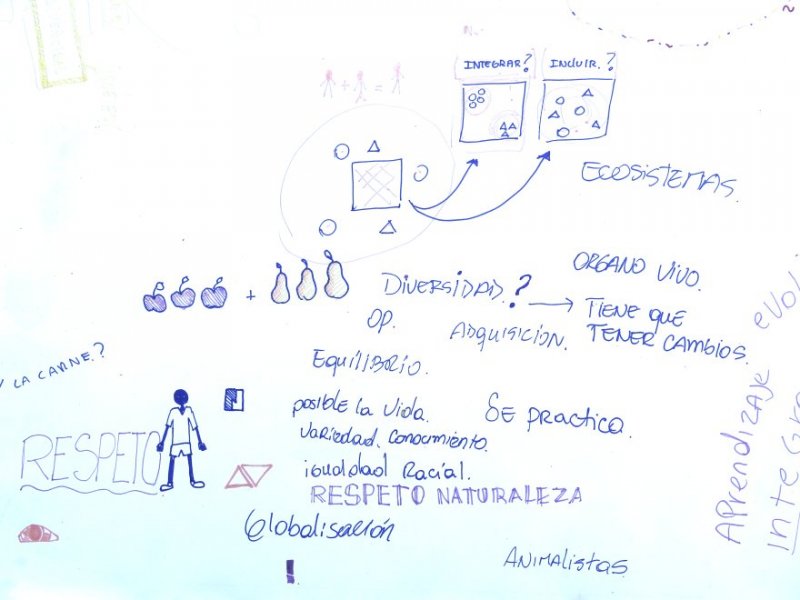 INTEGRAR?
INCLUIR.?
+ =
ECOSISTEMAS.
ORGANO VIVO.
+
DIVERSIDAD.?
TIENE QUE
TENER CAMBIOS.
OP.
ADQUISICION.
EquiLIBRIO.
LA CARNE.?
posible la vida.
SE practica.
variedad. conocimiento.
RESPETO
igualdad Racial.
RESPETO NATURALEZA
Globalisación
ANIMAListas
!
APrendizaje evol